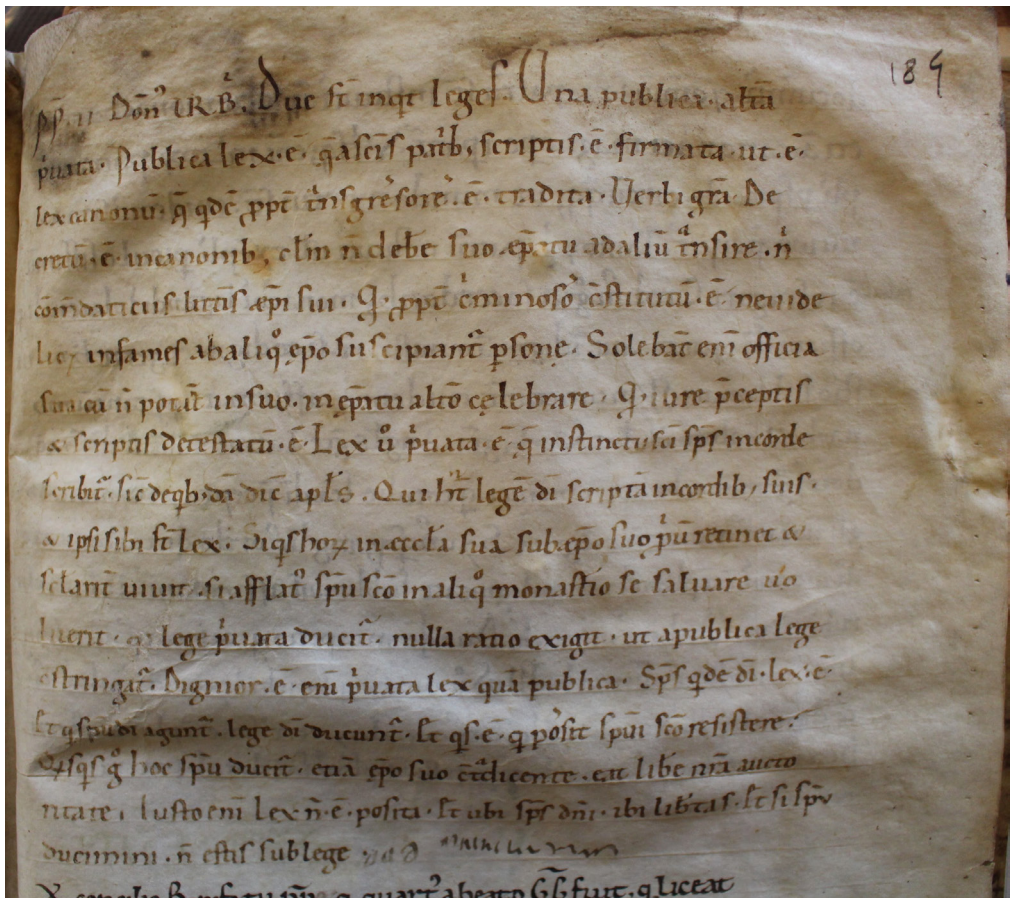 189
PP. II Don̄ᵒ IR. B̄. Due st̄ inq̇t leges. Una publica. alt̄a
p̓uata. Publica lex. ē. q̄ a sc̄is patrib; scriptis. ē. firmata. ut. ē.
lex canonū. q̄ q̇dē ꝓpt̄ t̄nsgressores. ē. tradita. Verbi gr̄a. De
cretū. ē. in canonib; cl̄m n̄ debe suo ep̄atu ad aliū t̄nsire. n̓
com̄daticiis litt̄is ep̄i sui. Q̇. ꝓpt̄ c̓minosoꝝ c̄stitutū. ē. ne uide
lic& infames ab aliq̊ ep̄o suscipiant̄ ꝑsonę. Solebāt eni officia
sua cū n̄ pot̄āt in suo. in ep̄atu alt̄o cęlebrare. Q̇. iure p̄ceptis
& scriptis detestatū. ē. Lex ů p̓uata. ē. q̄ instinctu sc̄i sp̄s in corde
scribit̄. sic̄ de q̇b; dā dic̄ apl̄s. Qui hn̄t legē dī scriptā in cordib; suis.
& ipsi sibi st̄ lex. Siq̇s hoꝝ in ęccl̄a sua sub ep̄o suo pp̄lū retinet &
sclarit̄ uiuit. si afflat᾽ sp̄u sc̄o in aliq̊ monast̄io se saluare uo
luerit. q̇ lege p̓uata ducit̄. nulla ratio exigit. ut a publica lege
c̄stringat̄. Dignior. ē. eni p̓uata lex quā publica. Sp̄s q̇dē dī. lex. ē.
Et q̇ sp̄u dī agunt̄. lege dī ducunt̄. Et q̇s. ē. q̇ possit sp̄ui sc̄o resistere.
Q̇sq̇s g̊ hoc sp̄u ducit̄. etiā ep̄o suo c̄t̄dicente. eat lib̄e nr̄a aucto
ritate. Iusto eni lex n̄. ē. posita. S; ubi sp̄s dn̄i. ibi lib̄tas. Et si sp̄u
ducimini. n̄ estis sub lege.
quart᾽ a beato fuit. q̇ liceat